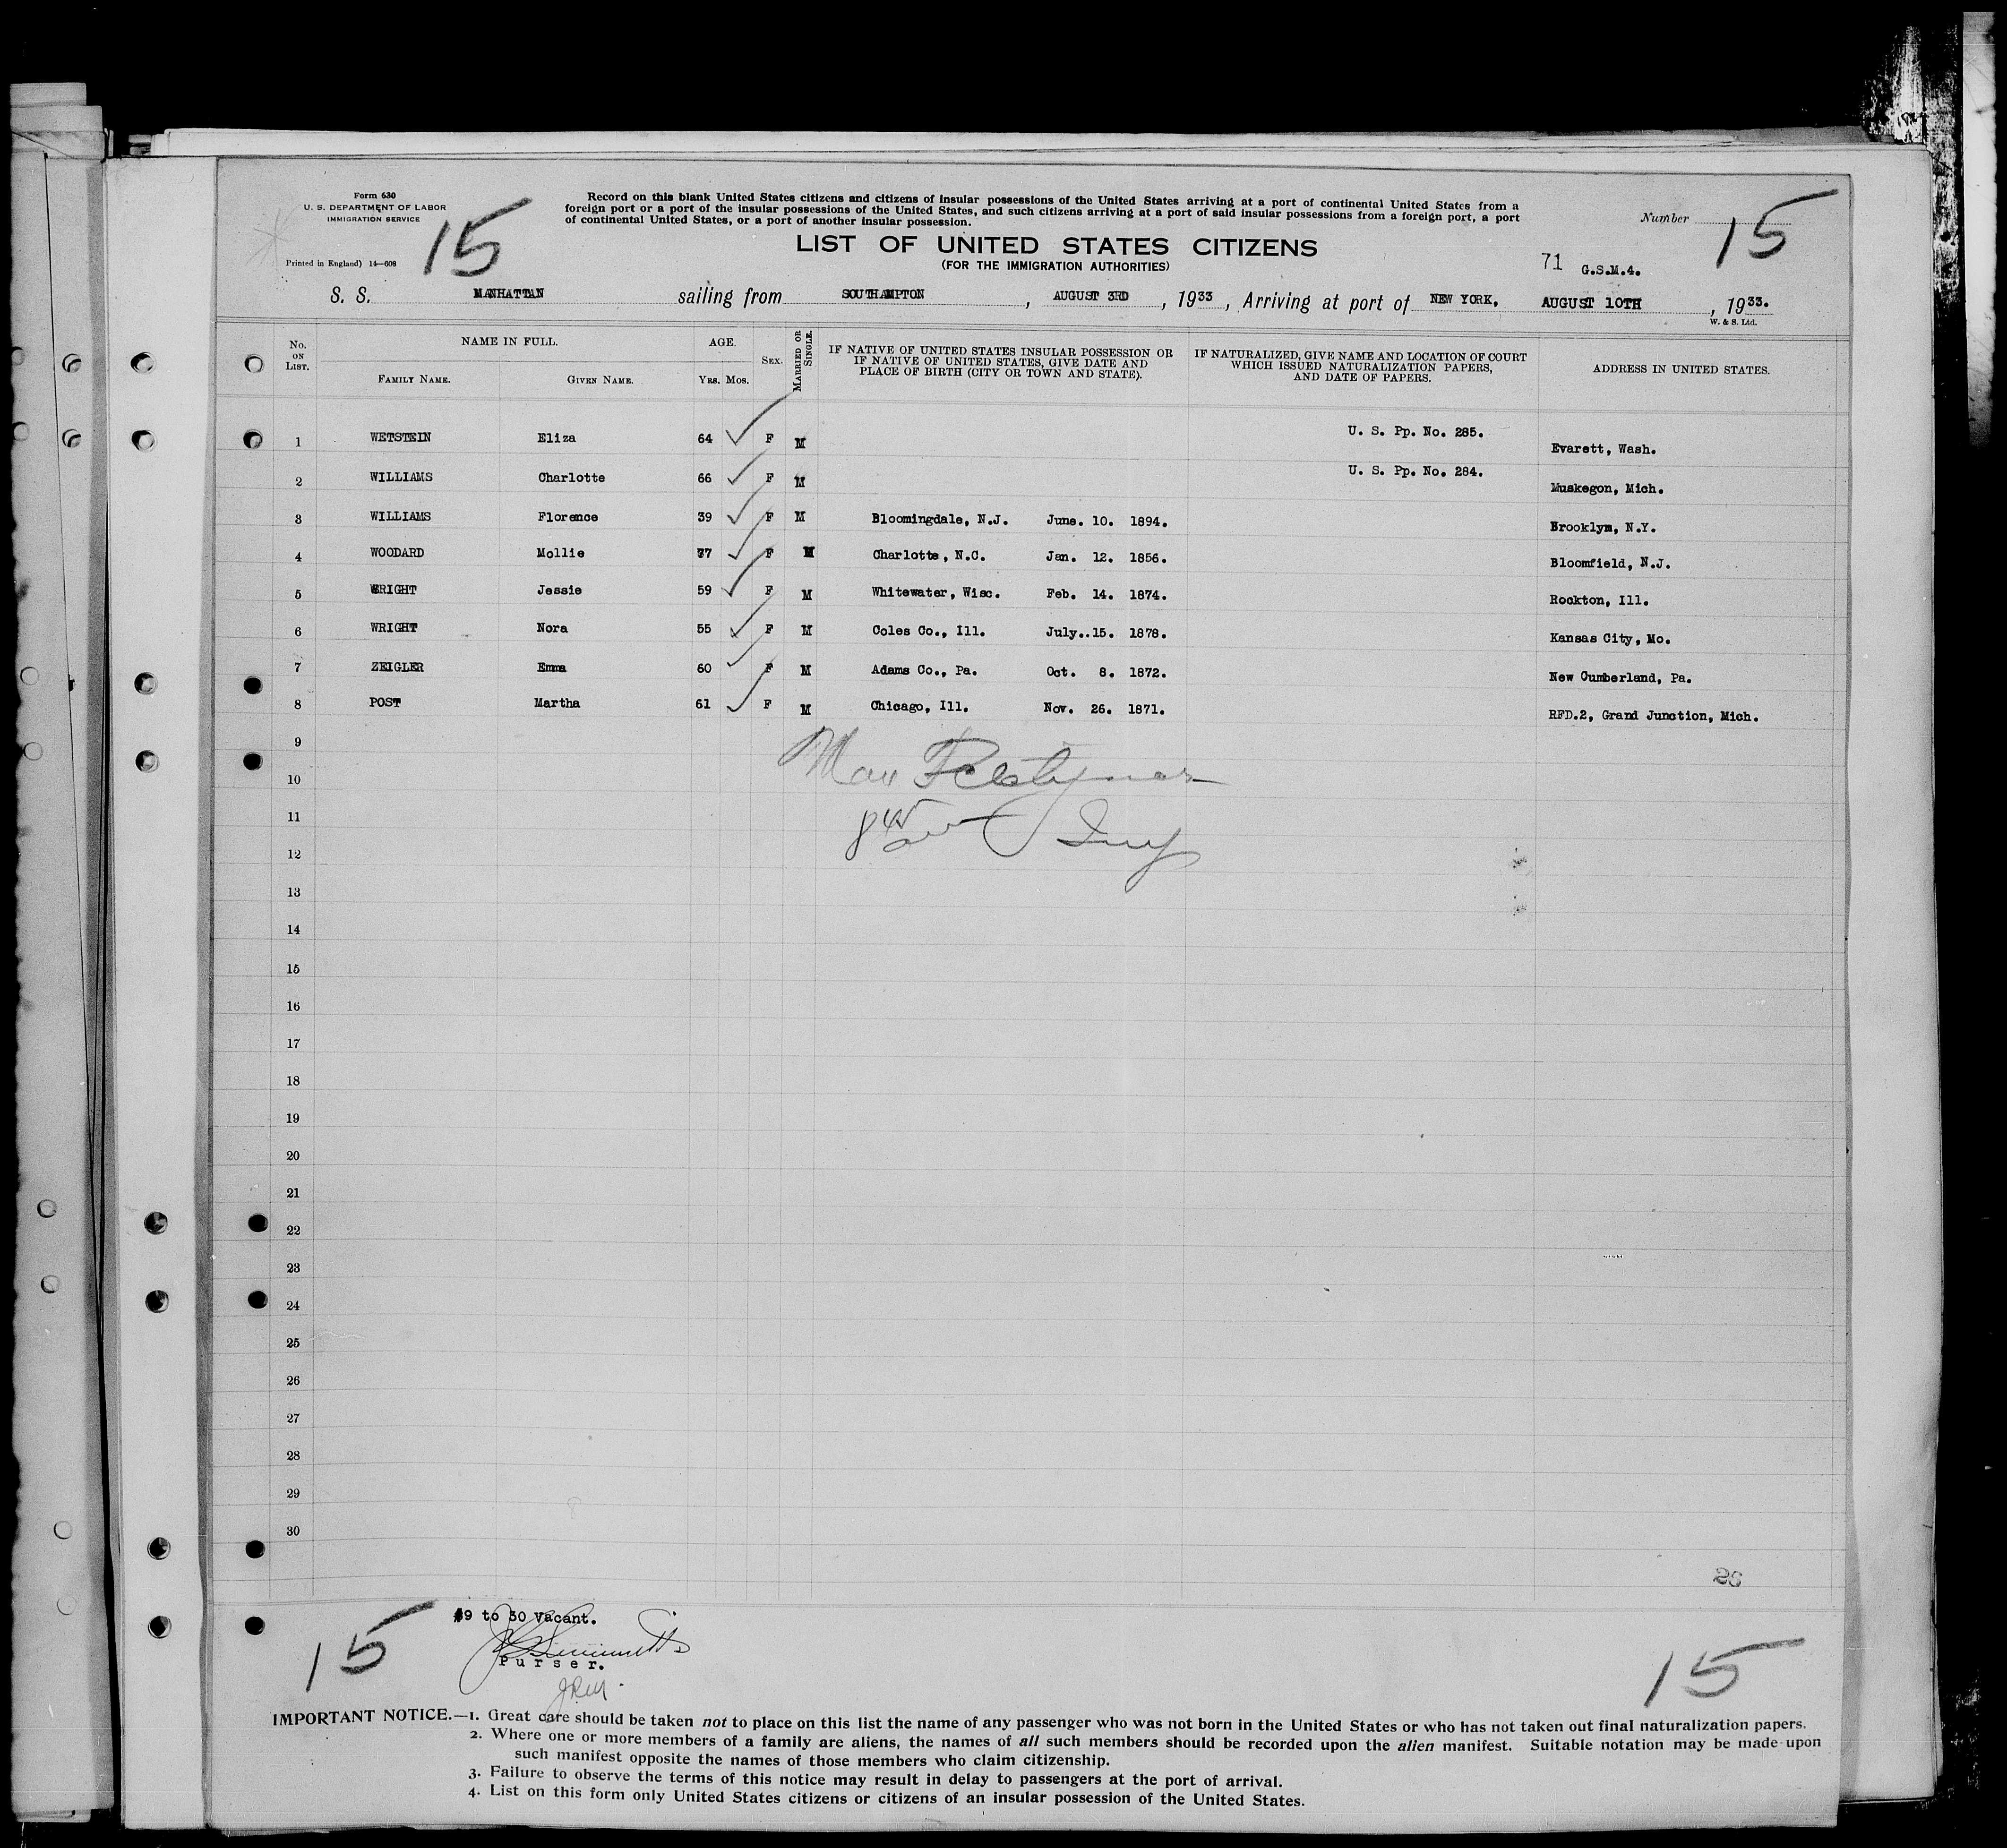 Form 630
U. S. DEPARTMENT OF LABOR
IMMIGRATION SERVICE
Printed in England) 14—608
15
Record on this blank United States citizens and citizens of insular possessions of the United States arriving at a port of continental United States from a
foreign port or a port of the insular possessions of the United States, and such citizens arriving at a port of said insular possessions from a foreign port, a port
of continental United States, or a port of another insular possession.
Number 15
LIST OF UNITED STATES CITIZENS
(FOR THE IMMIGRATION AUTHORITIES)
71 G.S.M.4.
S. S. MANHATTAN sailing from SOUTHAMPTON, AUGUST 3RD, 1933, Arriving at port of NEW YORK, AUGUST 10TH, 1933.
W. & S. Ltd.
No. ON LIST. NAME IN FULL. FAMILY NAME. GIVEN NAME. AGE. YRS. MOS. SEX. MARRIED OR SINGLE. IF NATIVE OF UNITED STATES INSULAR POSSESSION OR IF NATIVE OF UNITED STATES, GIVE DATE AND PLACE OF BIRTH (CITY OR TOWN AND STATE). IF NATURALIZED, GIVE NAME AND LOCATION OF COURT WHICH ISSUED NATURALIZATION PAPERS, AND DATE OF PAPERS. ADDRESS IN UNITED STATES.
1 WETSTEIN Eliza 64 F M U. S. Pp. No. 285. Evarett, Wash.
2 WILLIAMS Charlotte 66 F M U. S. Pp. No. 284. Muskegon, Mich.
3 WILLIAMS Florence 39 F M Bloomingdale, N.J. June. 10. 1894. Brooklyn, N.Y.
4 WOODARD Mollie 77 F M Charlotte, N.C. Jan. 12. 1856. Bloomfield, N.J.
5 WRIGHT Jessie 59 F M Whitewater, Wisc. Feb. 14. 1874. Rockton, Ill.
6 WRIGHT Nora 55 F M Coles Co., Ill. July..15. 1878. Kansas City, Mo.
7 ZEIGLER Emma 60 F M Adams Co., Pa. Oct. 8. 1872. New Cumberland, Pa.
8 POST Martha 61 F M Chicago, Ill. Nov. 26. 1871. RFD.2, Grand Junction, Mich.
9
10
11
12
13
14
15
16
17
18
19
20
21
22
23
24
25
26
27
28
29
30
15
#9 to 30 Vacant.
Purser.
15
IMPORTANT NOTICE.—1. Great care should be taken not to place on this list the name of any passenger who was not born in the United States or who has not taken out final naturalization papers.
2. Where one or more members of a family are aliens, the names of all such members should be recorded upon the alien manifest. Suitable notation may be made upon
such manifest opposite the names of those members who claim citizenship.
3. Failure to observe the terms of this notice may result in delay to passengers at the port of arrival.
4. List on this form only United States citizens or citizens of an insular possession of the United States.